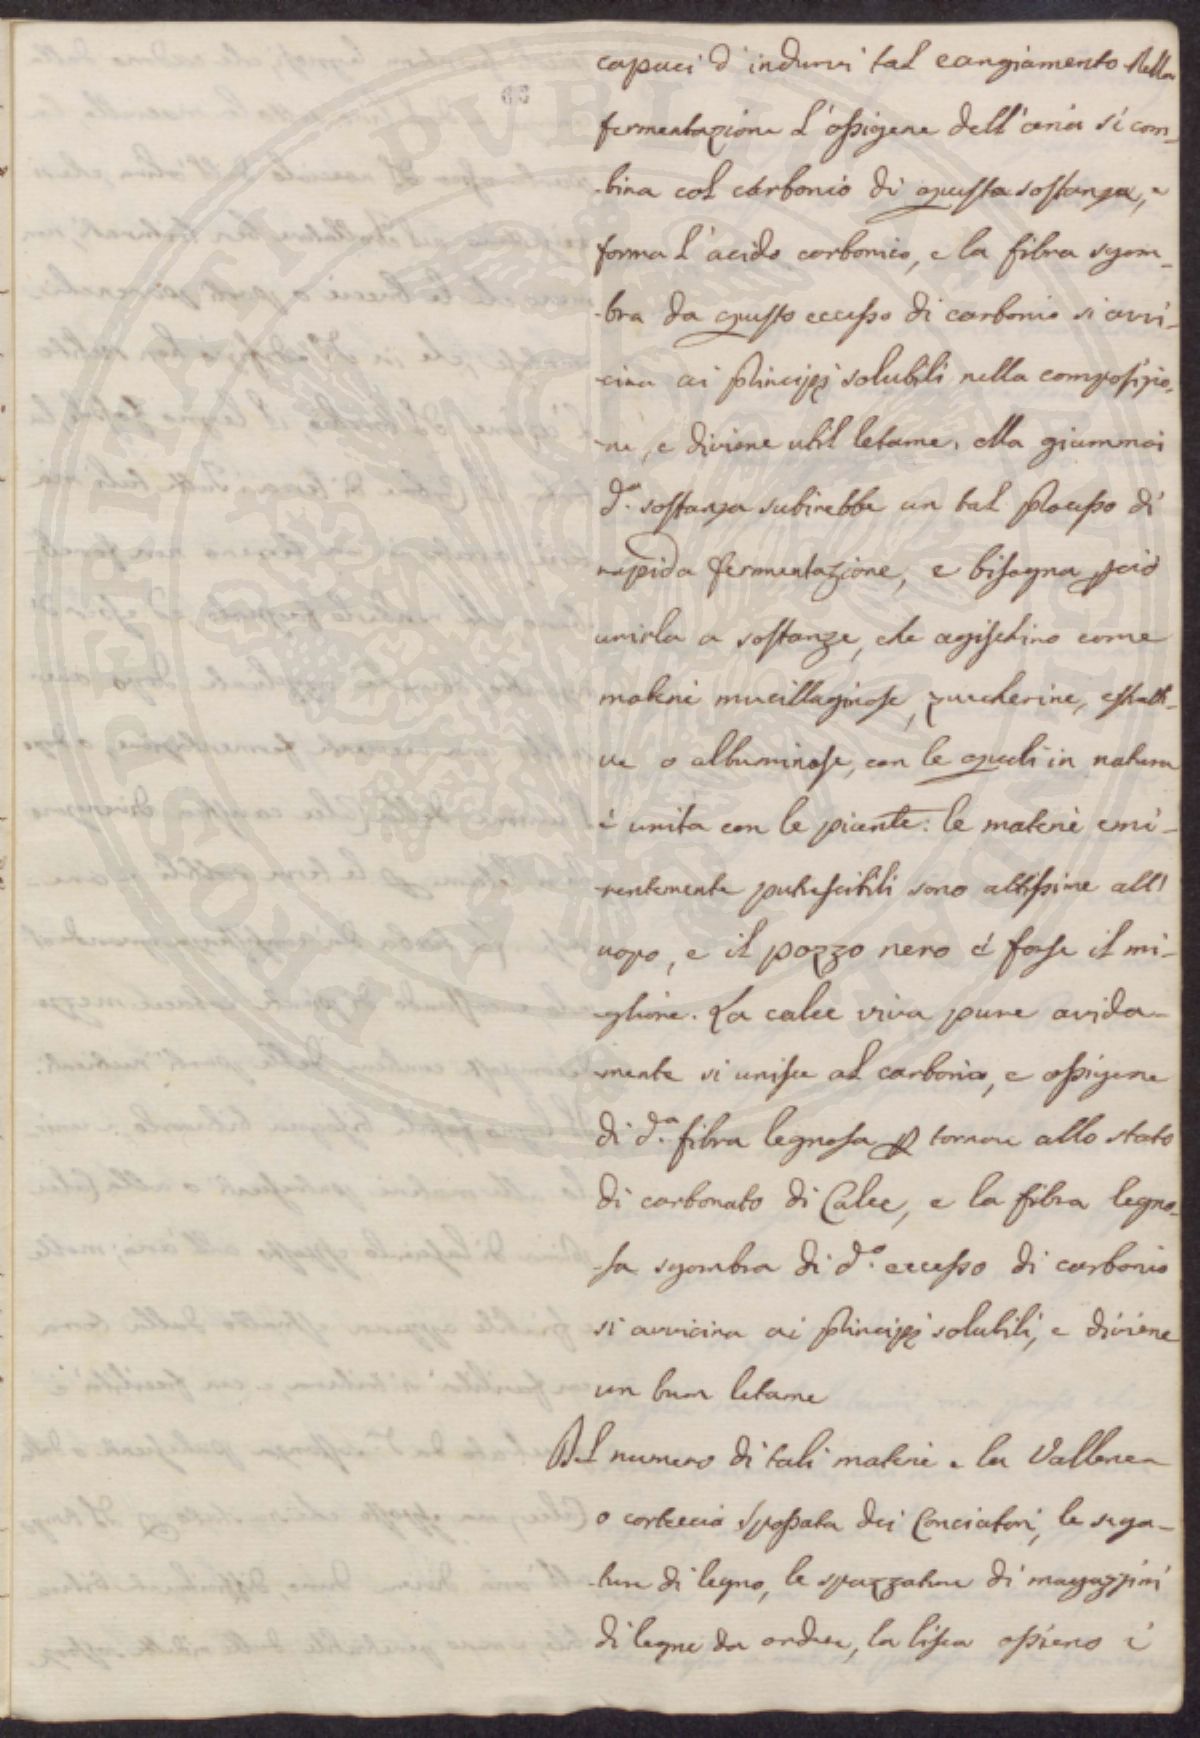 capaci d'indurvi tal cangiamento. Nella
fermentazione l'ossigene dell'aria si com-
-bina col carbonio di questa sostanza, e
forma l'acido carbonico, e la fibra sgom-
-bra da questo eccesso di carbonio si avvi-
-cina ai principj solubili nella composizio-
-ne, e diviene util letame. Ma giammai
d.a sostanza subirebbe un tal processo di
rapida fermentazione, e bisogna perciò
unirla a sostanze, che agischino come
materie mucillaginose, zuccherine, estratti-
ve o albuminose, con le quali in natura
è unita con le piante: le materie emi-
-nentemente putrescibili sono attissime all'
uopo, e il pozzo nero è forse il mi-
-gliore. La calce viva pure avida-
-mente si unisce al carbonio, e ossigene
di d.a fibra legnosa p tornare allo stato
di carbonato di Calce, e la fibra legno-
-sa sgombra di d.o eccesso di carbonio
si avvicina ai principj solubili, e diviene
un buon letame
Nel numero di tali materie e la Vallonea
o corteccia spossata dei Conciatori, le sega-
-ture di legno, le spazzature di magazzini
di legne da ardere, la lisca ossieno i